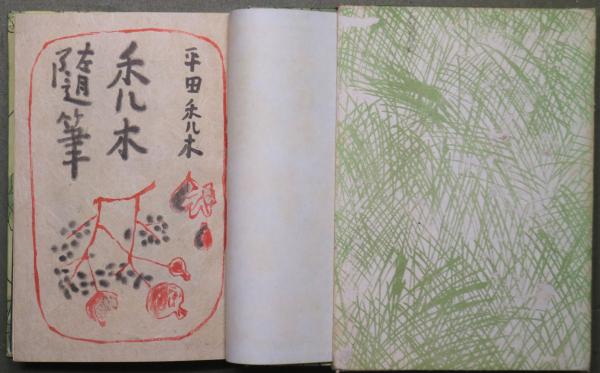 平田禿木
禿木
隨筆